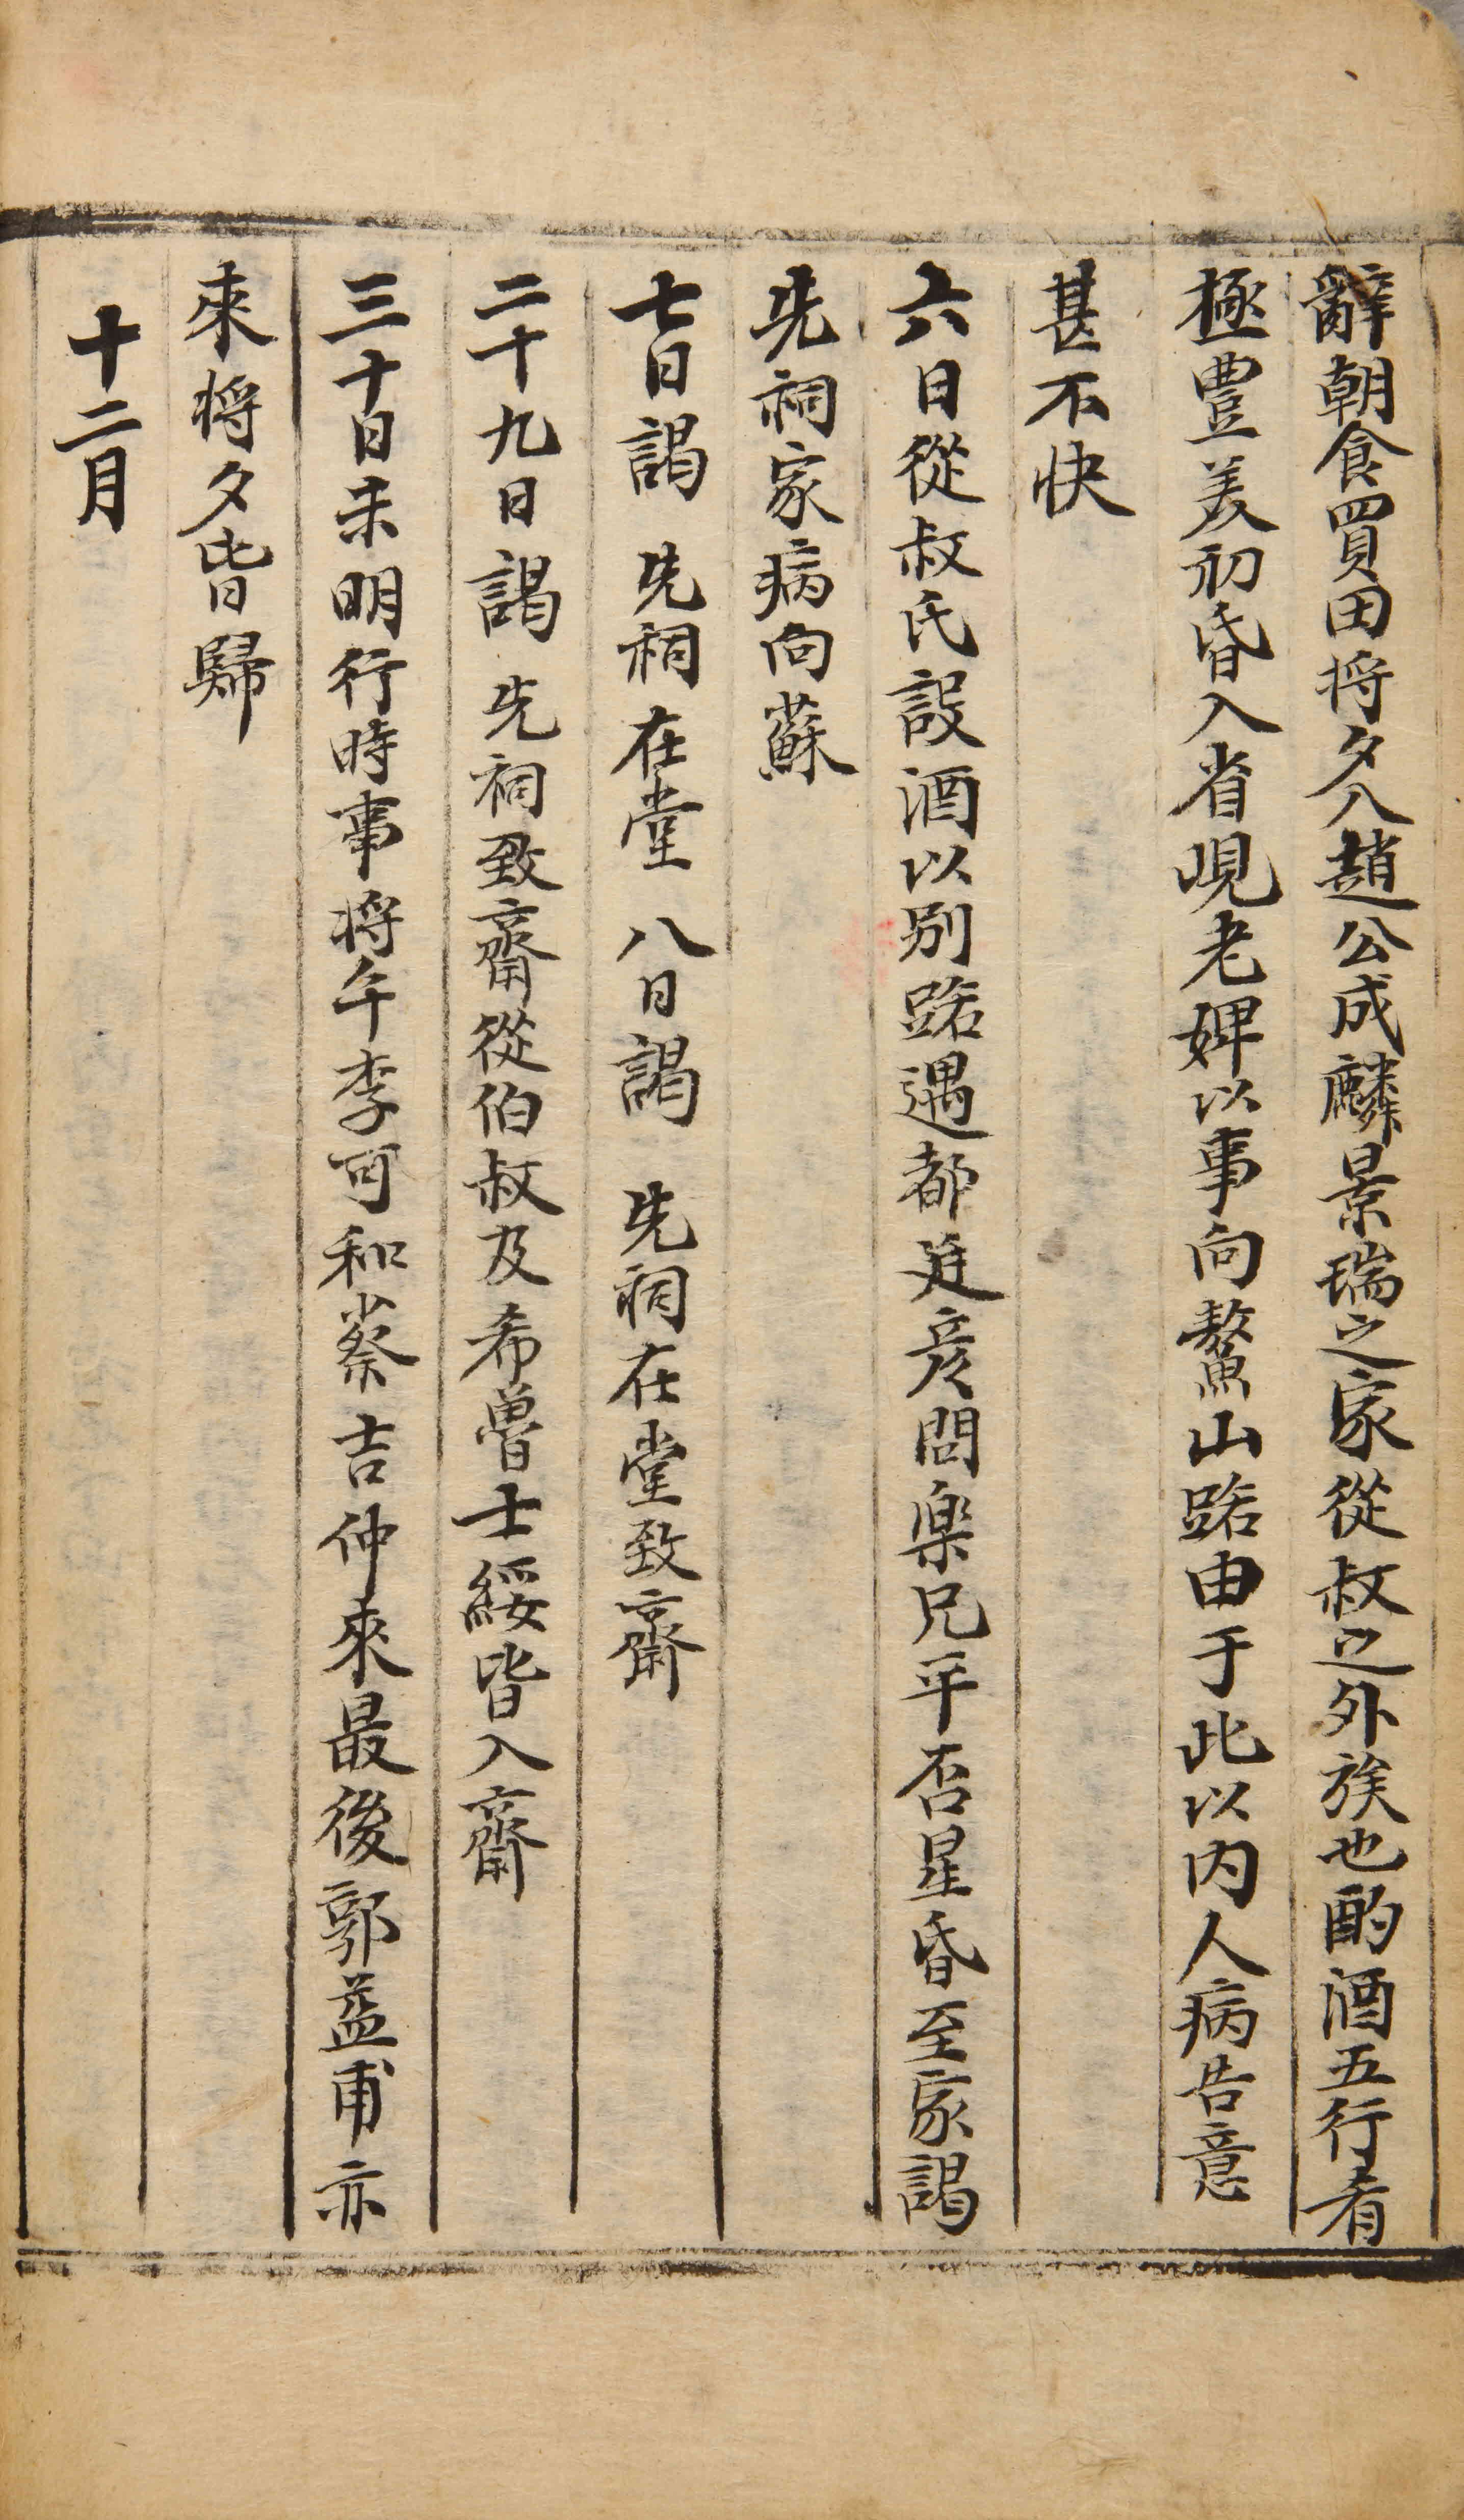 辭朝食買田將夕入趙公成麟景瑞之家從叔之外族也酌酒五行肴
極豊美初昏入省峴老婢以事向鰲山路由于此以内人病告意
甚不快
六日從叔氏設酒以別路遇都廷彦問樂兄平否星昏至家謁
先祠家病向蘇
七日謁 先祠在堂 八日謁 先祠在堂致齋
二十九日謁 先祠致齋從伯叔及希曾士綏皆入齋
三十日未明行時事將午李可和蔡吉仲來最後郭益甫亦
來將夕皆歸
十二月